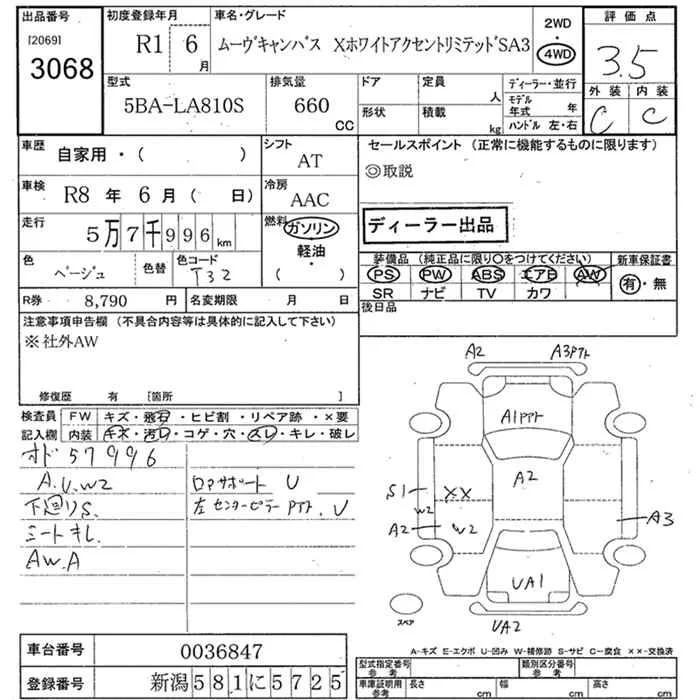 出品番号
[2069]
3068
初度登録年月
R1 6月
車名・グレード
ムーヴキャンバス XホワイトアクセントリミテッドSA3
2WD
4WD
評価点
3.5
外装 内装
C C
型式
5BA-LA810S
排気量
660 CC
ドア
形状
定員 人
積載 kg
ディーラー・並行
モデル年式 年
ハンドル 左・右
車歴 自家用・( )
シフト AT
車検 R8年6月( 日)
冷房 AAC
走行 5万7千996km
燃料 ガソリン
軽油
( ・ )
色 ベージュ 色替 色コード T32
R券 8,790 円 名変期限 月 日
セールスポイント (正常に機能するものに限ります)
◎取説
ディーラー出品
装備品 (純正品に限り〇をつけてください) 新車保証書
PS PW ABS エアB AW 有・無
SR ナビ TV カワ
後日品
注意事項申告欄 (不具合内容等は具体的に記入して下さい)
※社外AW
修復歴 有 [箇所 ]
検査員記入欄
FW キズ・飛石・ヒビ割・リペア跡・×要
内装 キズ・汚レ・コゲ・穴・スレ・キレ・破レ
オド57996
A.U.W2
下廻りS.
シートキレ.
AW.A
ロアサポート U
左センターピラーPアト.U
A2 A3Pアト
A1Pアト
A2
S1 XX
W2
A2 W2
A3
UA1
UA2
スペア
A-キズ E-エクボ U-凹み W-補修跡 S-サビ C-腐食 ××-交換済
車台番号 0036847
登録番号 新潟581に5725
型式指定番号 参考
類別区分番号 参考
車庫証明用 参考 長さ cm 幅 cm 高さ cm